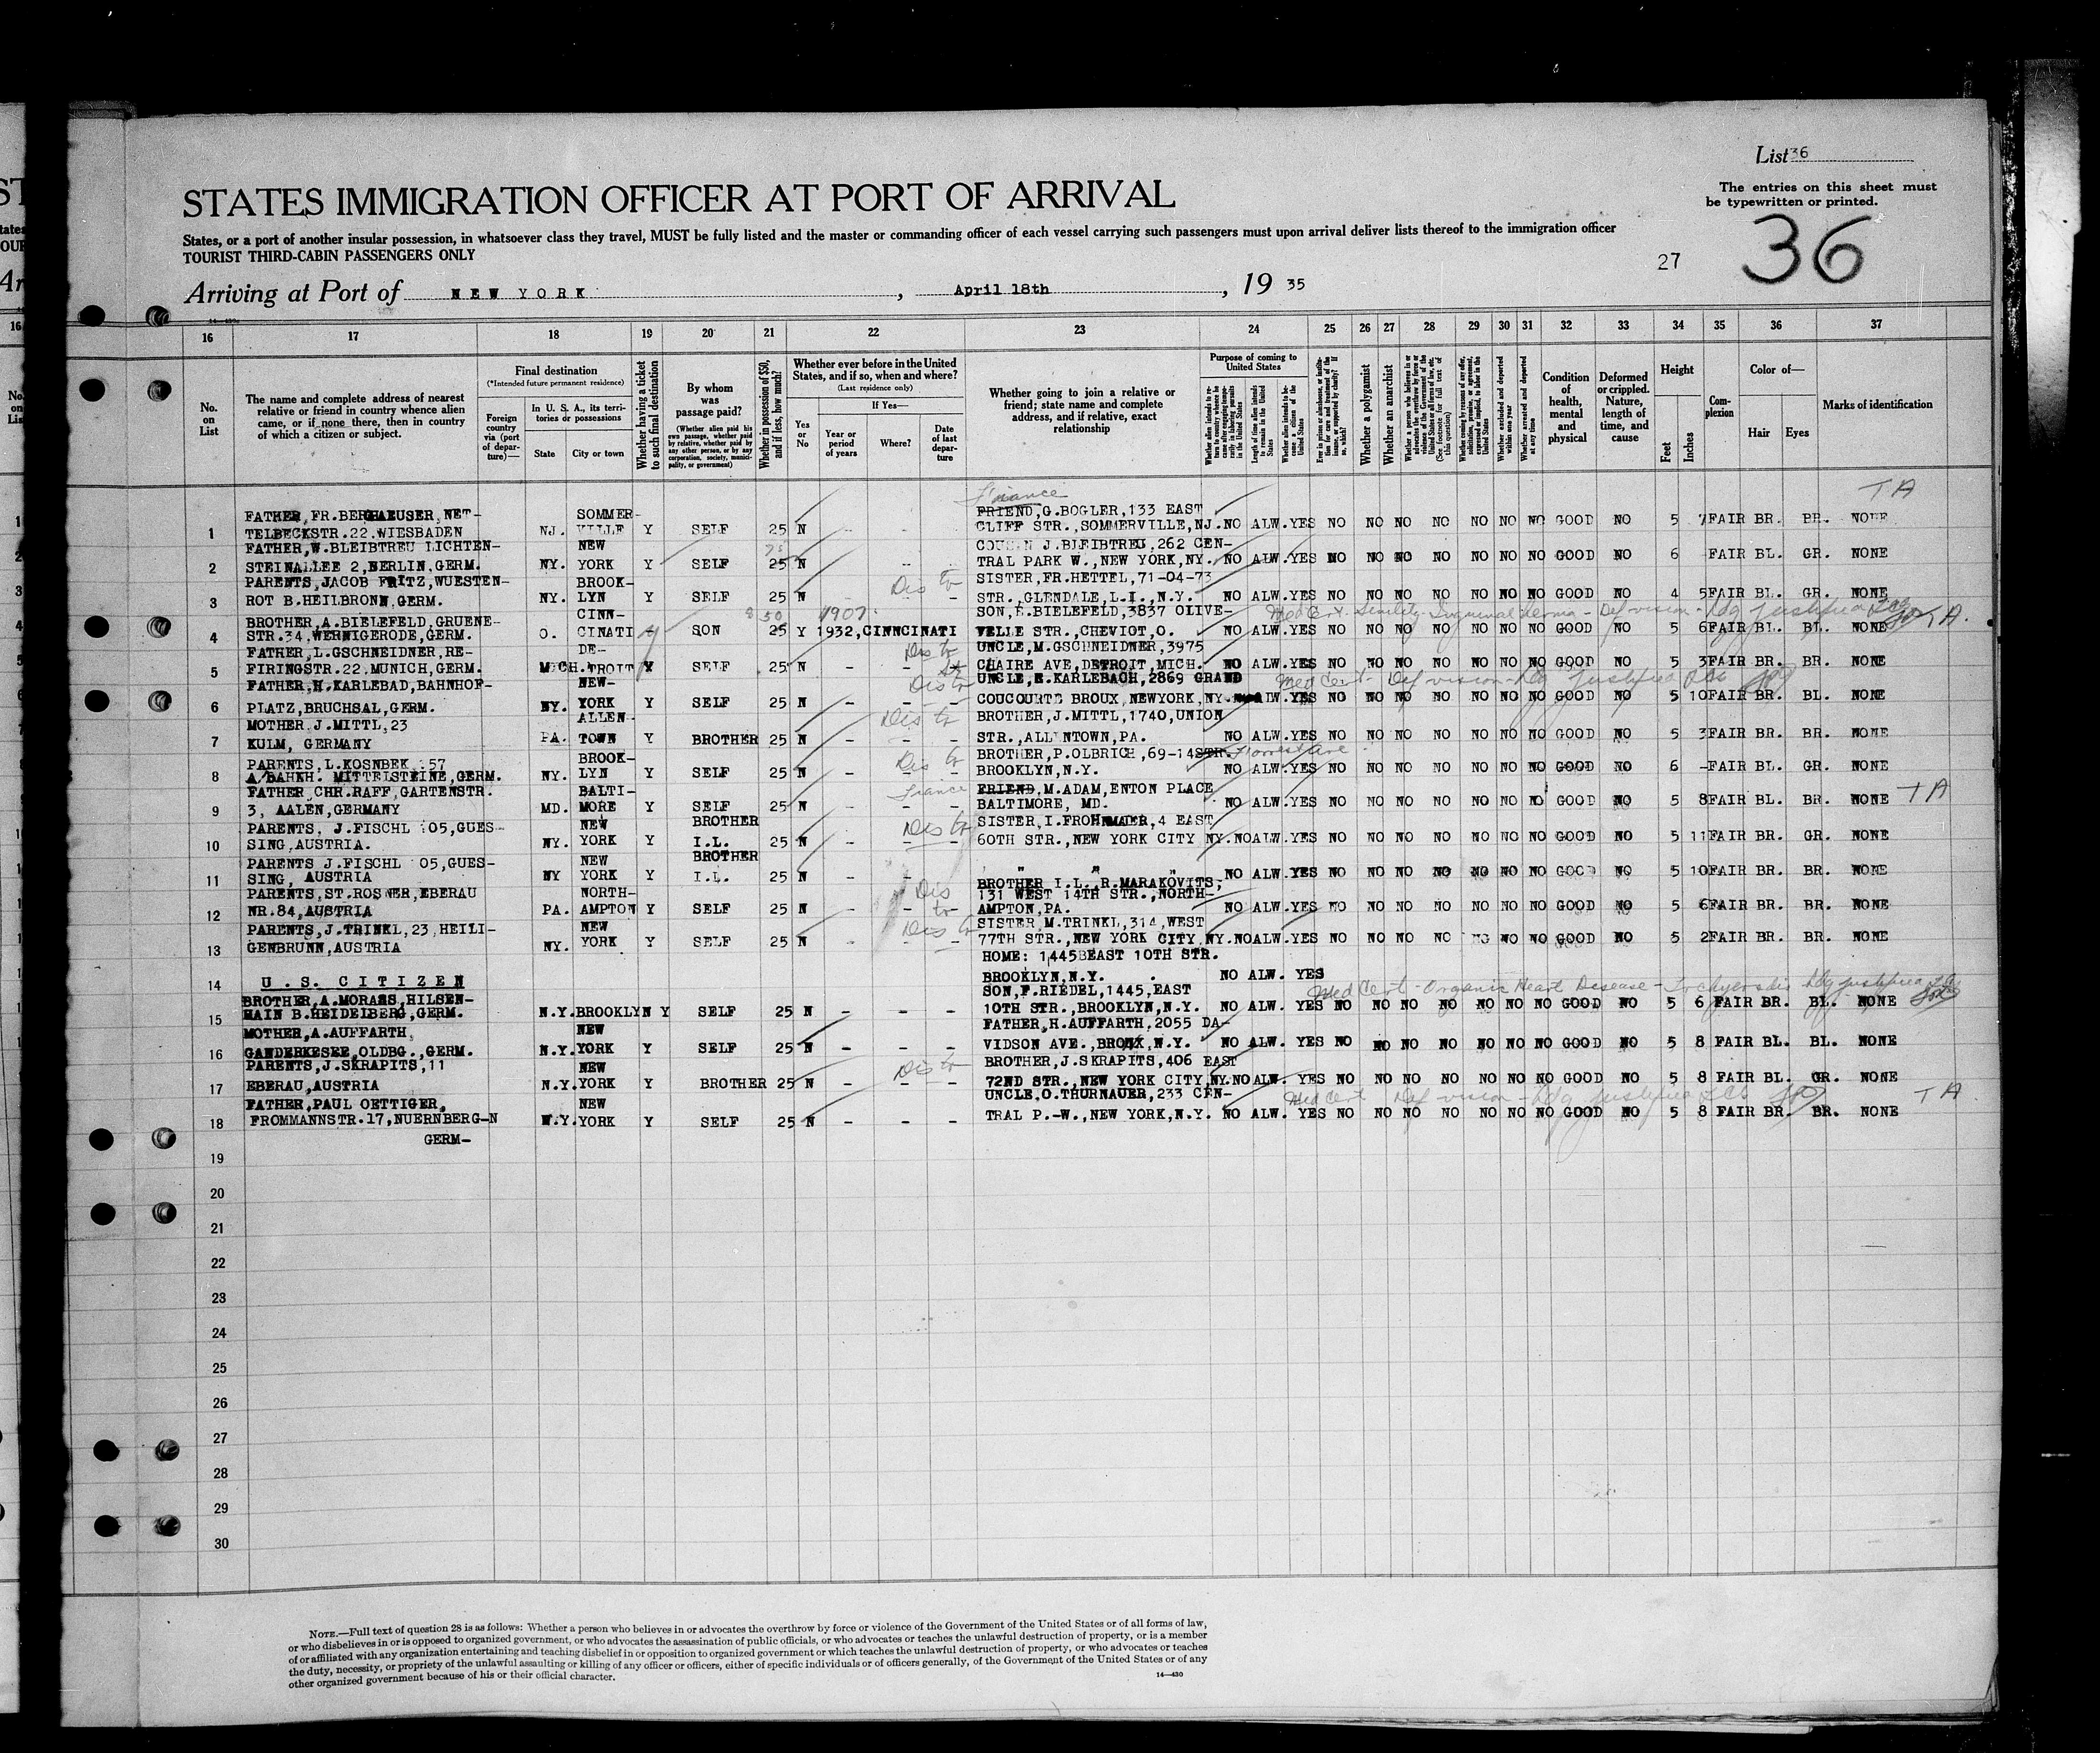 List 36
The entries on this sheet must
be typewritten or printed.
STATES IMMIGRATION OFFICER AT PORT OF ARRIVAL
36
States, or a port of another insular possession, in whatsoever class they travel, MUST be fully listed and the master or commanding officer of each vessel carrying such passengers must upon arrival deliver lists thereof to the immigration officer
TOURIST THIRD-CABIN PASSENGERS ONLY
27
Arriving at Port of NEW YORK, April 18th, 19 35
16 17 18 19 20 21 22 23 24 25 26 27 28 29 30 31 32 33 34 35 36 37
No. on List
The name and complete address of nearest
relative or friend in country whence alien
came, or if none there, then in country
of which a citizen or subject.
Final destination
(*Intended future permanent residence)
Foreign country via (port of departure)—
In U. S. A., its territories or possessions
State
City or town
Whether having a ticket to such final destination
By whom was passage paid?
(Whether alien paid his own passage, whether paid by relative, whether paid by any other person, or by any corporation, society, municipality, or government)
Whether in possession of $50, and if less, how much?
Whether ever before in the United States, and if so, when and where?
(Last residence only)
Yes or No
If Yes—
Year or period of years
Where?
Date of last departure
Whether going to join a relative or
friend; state name and complete
address, and if relative, exact
relationship
Purpose of coming to United States
Length of time alien intends to remain in the United States
Whether alien intends to become a citizen of the United States
Whether a polygamist
Whether an anarchist
(See footnote for full text of this question)
Whether excluded and deported within one year
Whether arrested and deported at any time
Condition of health, mental and physical
Deformed or crippled. Nature, length of time, and cause
Height
Feet
Inches
Complexion
Color of—
Hair
Eyes
Marks of identification
TA
1 FATHER, FR.BERGHAEUSER, NET- SOMMER- FRIEND,G.BOGLER,133 EAST
TELBECKSTR.22.WIESBADEN NJ. VILLE Y SELF 25 N - - CLIFF STR.,SOMMERVILLE,NJ. NO ALW. YES NO NO NO NO NO NO NO GOOD NO 5 7 FAIR BR. BR. NONE
2 FATHER,W.BLEIBTREU LICHTEN- NEW COUSIN J.BLEIBTREU,262 CEN-
STEINALLEE 2,BERLIN,GERM. NY. YORK Y SELF 25 N - - TRAL PARK W.,NEW YORK,NY. NO ALW. YES NO NO NO NO NO NO NO GOOD NO 6 FAIR BL. GR. NONE
3 PARENTS,JACOB FRITZ,WUESTEN- BROOK- Dis to SISTER,FR.HETTEL,71-04-73
ROT B.HEILBRONN,GERM. NY. LYN Y SELF 25 N - - STR.,GLENDALE,L.I.,N.Y. NO ALW. YES NO NO NO NO NO NO NO GOOD NO 4 5 FAIR BL. GR. NONE
4 BROTHER,A.BIELEFELD,GRUENE- CINN- 50 1907 SON,E.BIELEFELD,3837 OLIVE- Med Cert
STR.34,WERNIGERODE,GERM. O. CINATI SON 25 Y 1932,CINNCINATI VELLE STR.,CHEVIOT,O. NO ALW. YES NO NO NO NO NO NO NO GOOD NO 5 6 FAIR BL. BL. NONE TA.
5 FATHER,L.GSCHNEIDNER,RE- DE- Dis to UNCLE,M.GSCHNEIDNER,3975
FIRINGSTR.22,MUNICH,GERM. MICH. TROIT Y SELF 25 N - - CHAIRE AVE,DETROIT,MICH. NO ALW. YES NO NO NO NO NO NO NO GOOD NO 5 3 FAIR BR. BR. NONE
6 FATHER,H.KARLEBAD,BAHNHOF- NEW- Dis to UNCLE,E.KARLEBACH,2869 GRAND Med Cert - Def vision - Dg justified
PLATZ,BRUCHSAL,GERM. NY. YORK Y SELF 25 N - - - COUCOURTS BROUX,NEWYORK,NY. ALW. YES NO NO NO NO NO NO NO GOOD NO 5 10 FAIR BR. BL. NONE
7 MOTHER J.MITTL,23 ALLEN- Dis to BROTHER,J.MITTL,1740,UNION
KULM, GERMANY PA. TOWN Y BROTHER 25 N - - - STR.,ALLENTOWN,PA. NO ALW. YES NO NO NO NO NO NO NO GOOD NO 5 3 FAIR BR. BR. NONE
8 PARENTS,L.KOSNBEK 57 BROOK- Dis to BROTHER,P.OLBRICH,69-14STR. Forrest Ave
A/BAHNH. MITTELSTEINE,GERM. NY. LYN Y SELF 25 N - - - BROOKLYN,N.Y. NO ALW. YES NO NO NO NO NO NO NO GOOD NO 6 - FAIR BL. GR. NONE
9 FATHER,CHR.RAFF,GARTENSTR. BALTI- FRIEND,M.ADAM,ENTON PLACE
3, AALEN,GERMANY MD. MORE Y SELF 25 N - - - BALTIMORE, MD. NO ALW. YES NO NO NO NO NO NO NO GOOD NO 5 8 FAIR BL. BR. NONE TA
10 PARENTS, J.FISCHL 105,GUES- NEW BROTHER Dis to SISTER,I.FROHNMAIER,4 EAST
SING,AUSTRIA. NY. YORK Y I.L. 25 N - - - 60TH STR.,NEW YORK CITY NY. NO ALW. YES NO NO NO NO NO NO NO GOOD NO 5 11 FAIR BR. GR. NONE
11 PARENTS J.FISCHL 105,GUES- NEW BROTHER
SING, AUSTRIA NY YORK Y I.L. 25 N " " " NO ALW. YES NO NO NO NO NO NO NO GOOD NO 5 10 FAIR BR. BR. NONE
12 PARENTS,ST.ROSNER,EBERAU NORTH- Dis to BROTHER I.L.,R.MARAKOVITS,
131 WEST 14TH STR.,NORTH-
NR.84,AUSTRIA PA. AMPTON Y SELF 25 N - - AMPTON,PA. NO ALW. YES NO NO NO NO NO NO NO GOOD NO 5 6 FAIR BR. BR. NONE
13 PARENTS,J.TRINKL,23,HEILI- NEW Dis to SISTER,M.TRINKL,314,WEST
GENBRUNN,AUSTRIA NY. YORK Y SELF 25 N - - - 77TH STR.,NEW YORK CITY,NY. NO ALW. YES NO NO NO NO NO NO NO GOOD NO 5 2 FAIR BR. BR. NONE
HOME: 1445BEAST 10TH STR.
14 U.S. CITIZEN BROOKLYN,N.Y. NO ALW. YES
15 BROTHER,A.MORASS,HILSEN- SON,F.RIEDEL,1445,EAST Med Cert - Organic Heart Disease - Dg justified
HAIN B.HEIDELBERG,GERM. N.Y. BROOKLYN Y SELF 25 N - - - 10TH STR.,BROOKLYN,N.Y. NO ALW. YES NO NO NO NO NO NO NO GOOD NO 5 6 FAIR BR. BL. NONE
16 MOTHER,A.AUFFARTH, NEW FATHER,H.AUFFARTH,2055 DA-
GANDERKESEE,OLDBG.,GERM. N.Y. YORK Y SELF 25 N - - - VIDSON AVE.,BRONX,N.Y. NO ALW. YES NO NO NO NO NO NO NO GOOD NO 5 8 FAIR BL. BL. NONE
17 PARENTS,J.SKRAPITS,11 NEW Dis to BROTHER,J.SKRAPITS,406 EAST
EBERAU,AUSTRIA N.Y. YORK Y BROTHER 25 N - - - 72ND STR.,NEW YORK CITY,NY. NO ALW. YES NO NO NO NO NO NO NO GOOD NO 5 8 FAIR BL. GR. NONE
18 FATHER,PAUL OETTIGER, NEW UNCLE,O.THURNAUER,233 CEN- Med Cert Def vision - Dg justified TA
FROMMANNSTR.17,NUERNBERG-N N.Y. YORK Y SELF 25 N - - - TRAL P.-W.,NEW YORK,N.Y. NO ALW. YES NO NO NO NO NO NO NO GOOD NO 5 8 FAIR BR. BR. NONE
GERM-
19
20
21
22
23
24
25
26
27
28
29
30
NOTE.—Full text of question 28 is as follows: Whether a person who believes in or advocates the overthrow by force or violence of the Government of the United States or of all forms of law,
or who disbelieves in or is opposed to organized government, or who advocates the assassination of public officials, or who advocates or teaches the unlawful destruction of property, or is a member
of or affiliated with any organization entertaining and teaching disbelief in or opposition to organized government or which teaches the unlawful destruction of property, or who advocates or teaches
the duty, necessity, or propriety of the unlawful assaulting or killing of any officer or officers, either of specific individuals or of officers generally, of the Government of the United States or of any
other organized government because of his or their official character.
14—430